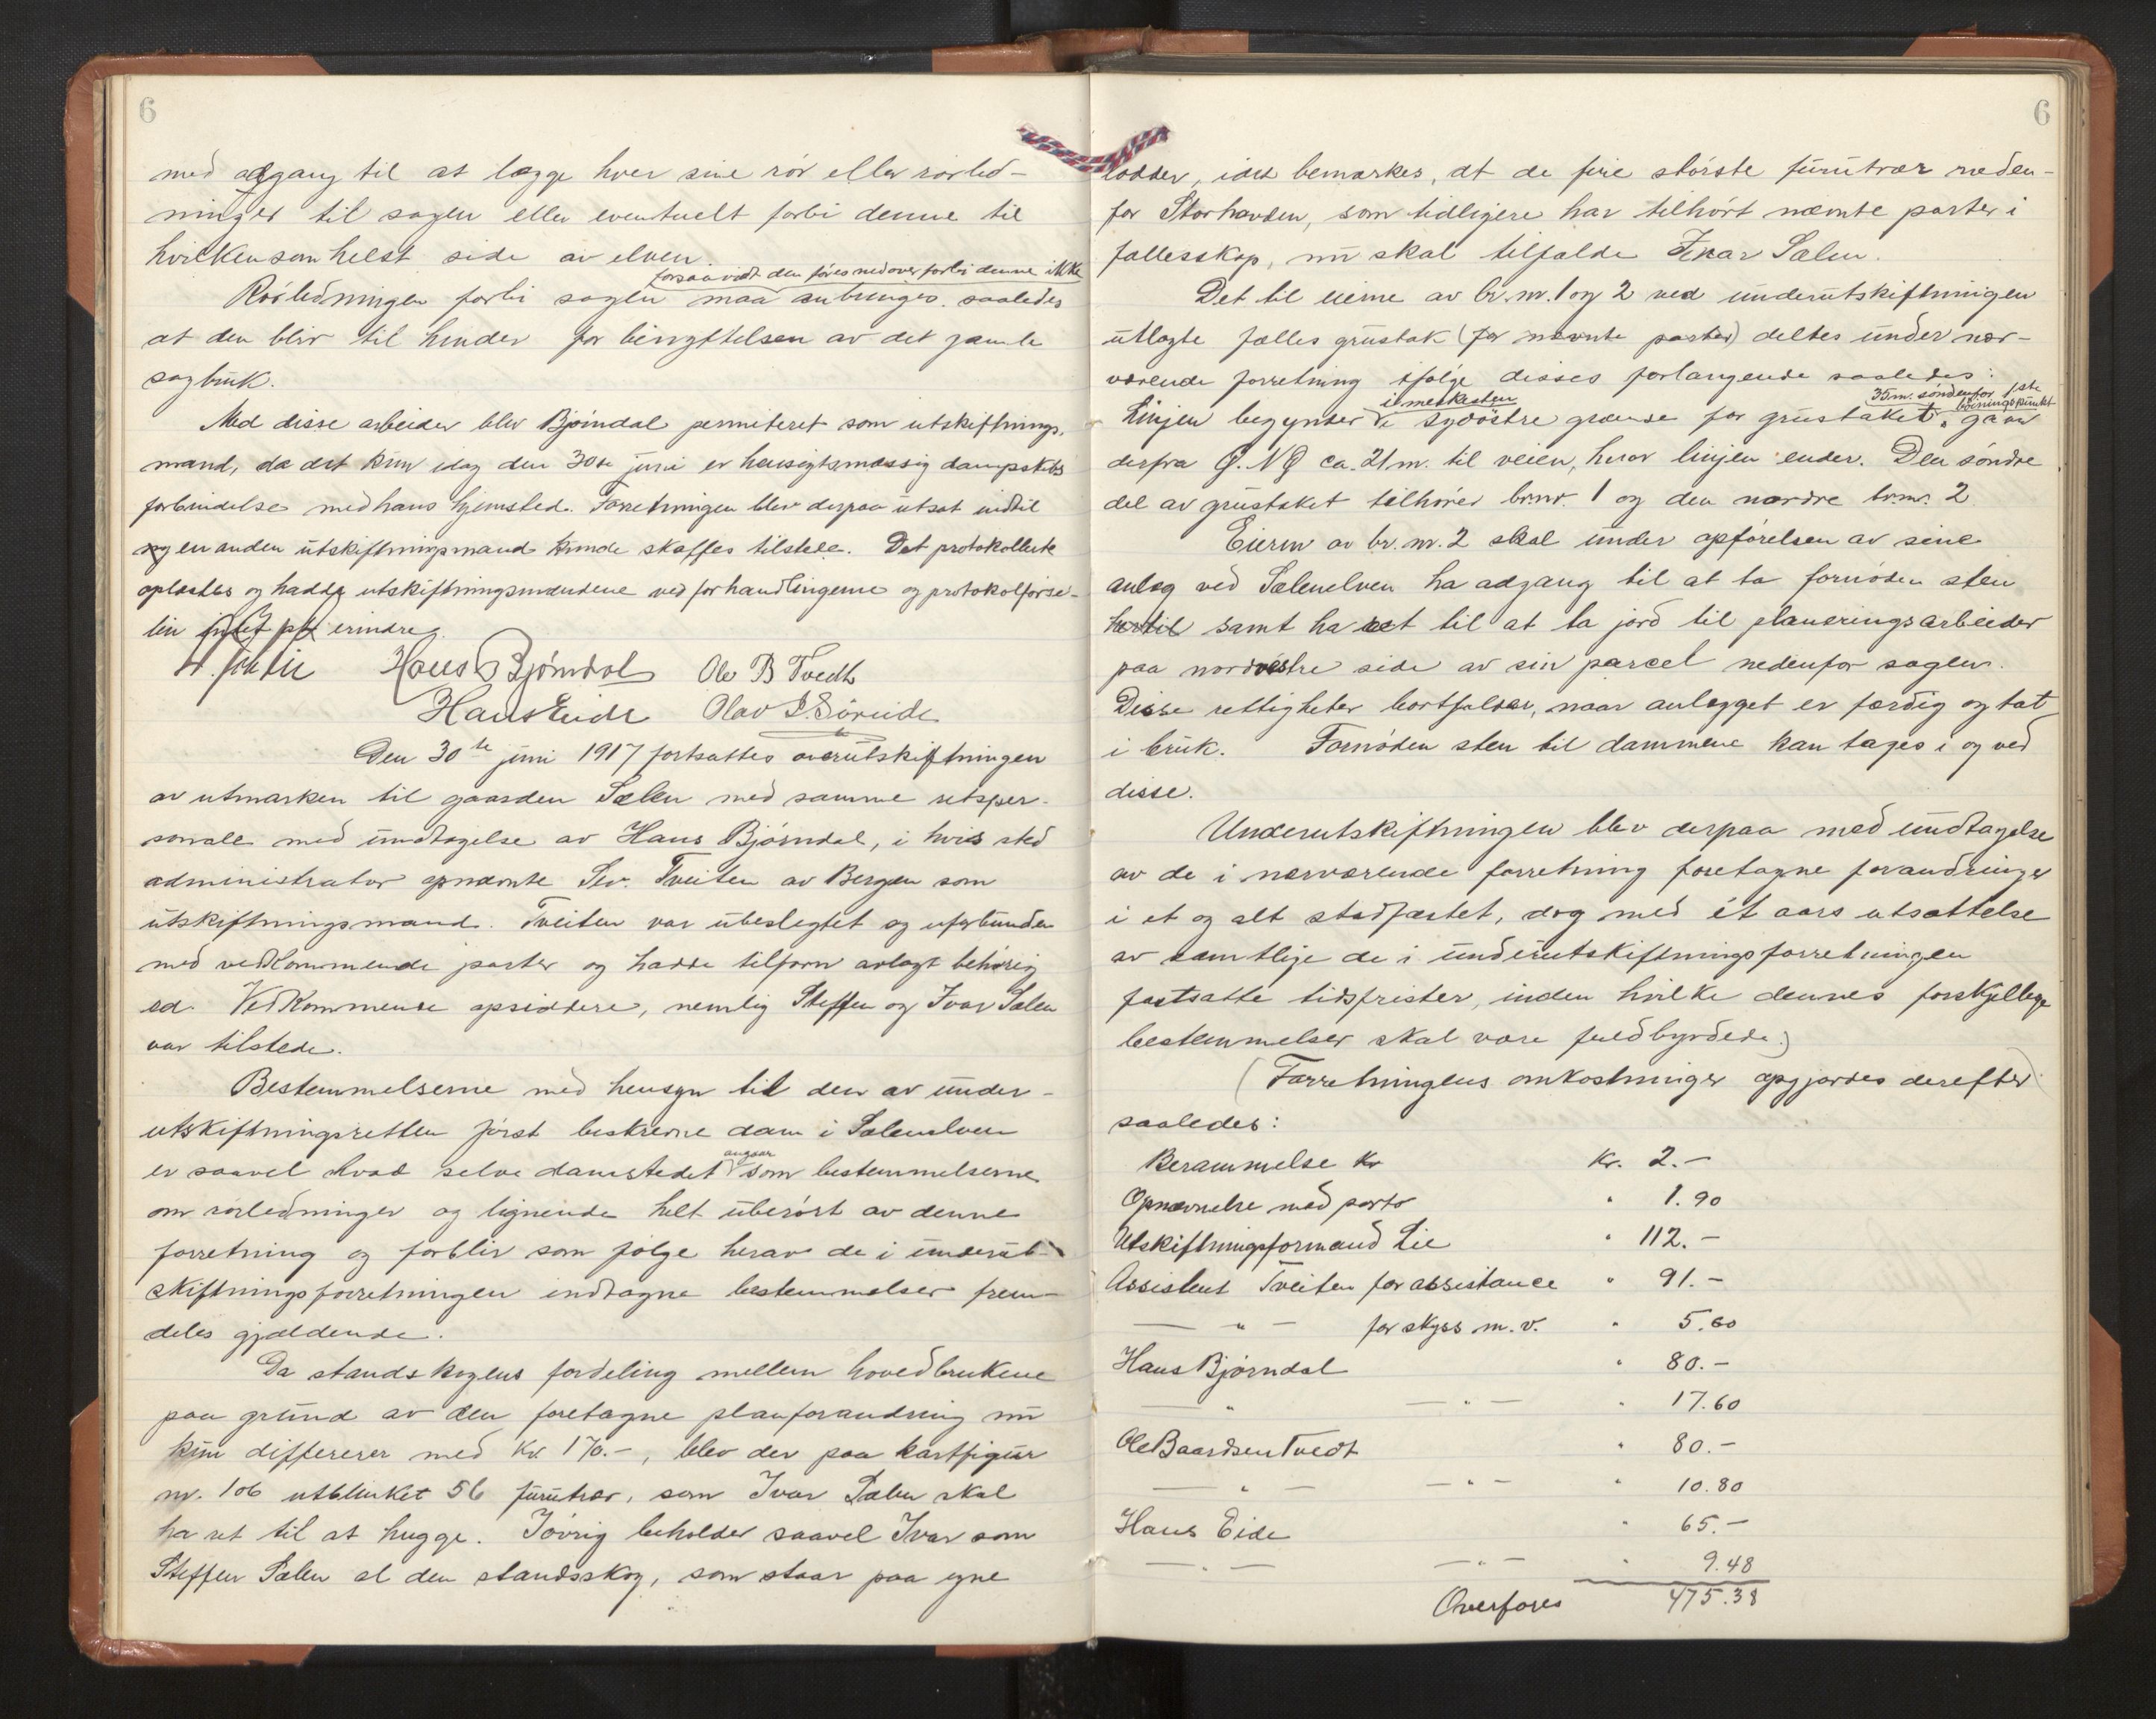 6
med adgang til at lægge hver sine rör eller rörled-
ninger til sagen eller eventuelt forbi denne til
hvilkensomhelst side av elven.
forsaavidt den föres nedover forbi denne ikke
Rörledningen forbi sagen maa anbringes saaledes
at den blir til hinder for benyttelsen av det gamle
sagbruk.
Med disse arbeider blev Bjørndal permiteret som utskiftnings-
mand, da det kun idag den 30te juni er hensigtsmæssig dampskibs
forbindelse med hans hjemsted. Forretningen blev derpaa utsat indtil
en anden utskiftningsmand kunde skaffes tilstede. Det protokollerte
oplæstes og hadde utskiftningsmændene ved forhandlingerne og protokolförse-
len intet at erindre.
Lie Hans Bjørndal Ole B Tvedt
Hans Eide Olav S. Söreide
Den 30te juni 1917 fortsattes overutskiftningen
av utmarken til gaarden Sælen med samme retsper-
sonale med undtagelse av Hans Bjørndal, i hvis sted
administrator opnævnte Sev. Tveiten av Bergen som
utskiftningsmand. Tveiten var ubeslegtet og uforbunden
med vedkommende parter og hadde tilforn avlagt behörig
ed. Vedkommende opsiddere, nemlig Steffen og Ivar Sælen
var tilstede.
Bestemmelserne med hensyn til den av under-
utskiftningsretten först beskrevne dam i Sælenelven
angaar
er saavel hvad selve damstedet som bestemmelserne
om rörledninger og lignende helt uberört av denne
forretning og forblir som fölge herav de i underut-
skiftningsforretningen indtagne bestemmelser frem-
deles gjældende.
Da standskogens fordeling mellem hovedbrukene
paa grund av den foretagne planforandring nu
kun differerer med Kr 170.-, blev der paa kartfigur
nr. 106 utblinket 56 furutrær, som Ivar Sælen skal
ha ret til at hugge. Iövrig beholder saavel Ivar som
Steffen Sælen al den standsskog, som staar paa egne
6
lodder, idet bemærkes, at de fire störste furutrær neden-
for Storhavden, som tidligere har tilhört nævnte parter i
fællesskap, nu skal tilfalde Ivar Sælen.
Det til eierne av br.nr. 1 og 2 ved underutskiftningen
utlagte fælles grustak (for nævnte parter) deltes under nær-
værende forretning ifölge disses forlangende saaledes:
i merkesten 35 m. söndenfor 1ste böiningspunkt
Linjen begynder i sydöstre grænse for grustaket, gaar
derfra Ø. NØ ca. 21 m. til veien, hvor linjen ender. Den söndre
del av grustaket tilhörer br.nr. 1 og den nordre br.nr. 2
Eieren av br. nr. 2 skal under opförelsen av sine
anlæg ved Sælenelven ha adgang til at ta fornöden sten
hertil samt ha ret til at ta jord til planeringsarbeider
paa nordvestre side av sin parcel nedenfor sagen.
Disse rettigheter bortfalder, naar anlægget er færdig og tat
i bruk. Fornöden sten til dammene kan tages i og ved
disse.
Underutskiftningen blev derpaa med undtagelse
av de i nærværende forretning foretagne forandringer
i et og alt stadfæstet, dog med ét aars utsættelse
av samtlige de i underutskiftningsforretningen
fastsatte tidsfrister, inden hvilke dennes forskjellige
bestemmelser skal være fuldbyrdede.)
(Forretningens omkostninger opgjordes derefter
saaledes:
Berammelse Kr Kr. 2.-
Opnævnelse med porto " 1.90
Utskiftningsformand Lie " 112.-
Assistent Tveiten for assistance " 91.-
— " — for skyss m.v. " 5.60
Hans Bjørndal " 80.-
— " — — " — " 17.60
Ole Baardsen Tvedt " 80.-
— " — — " — " 10.80
Hans Eide " 65.-
— " — — " — " 9.48
Overføres 475.38